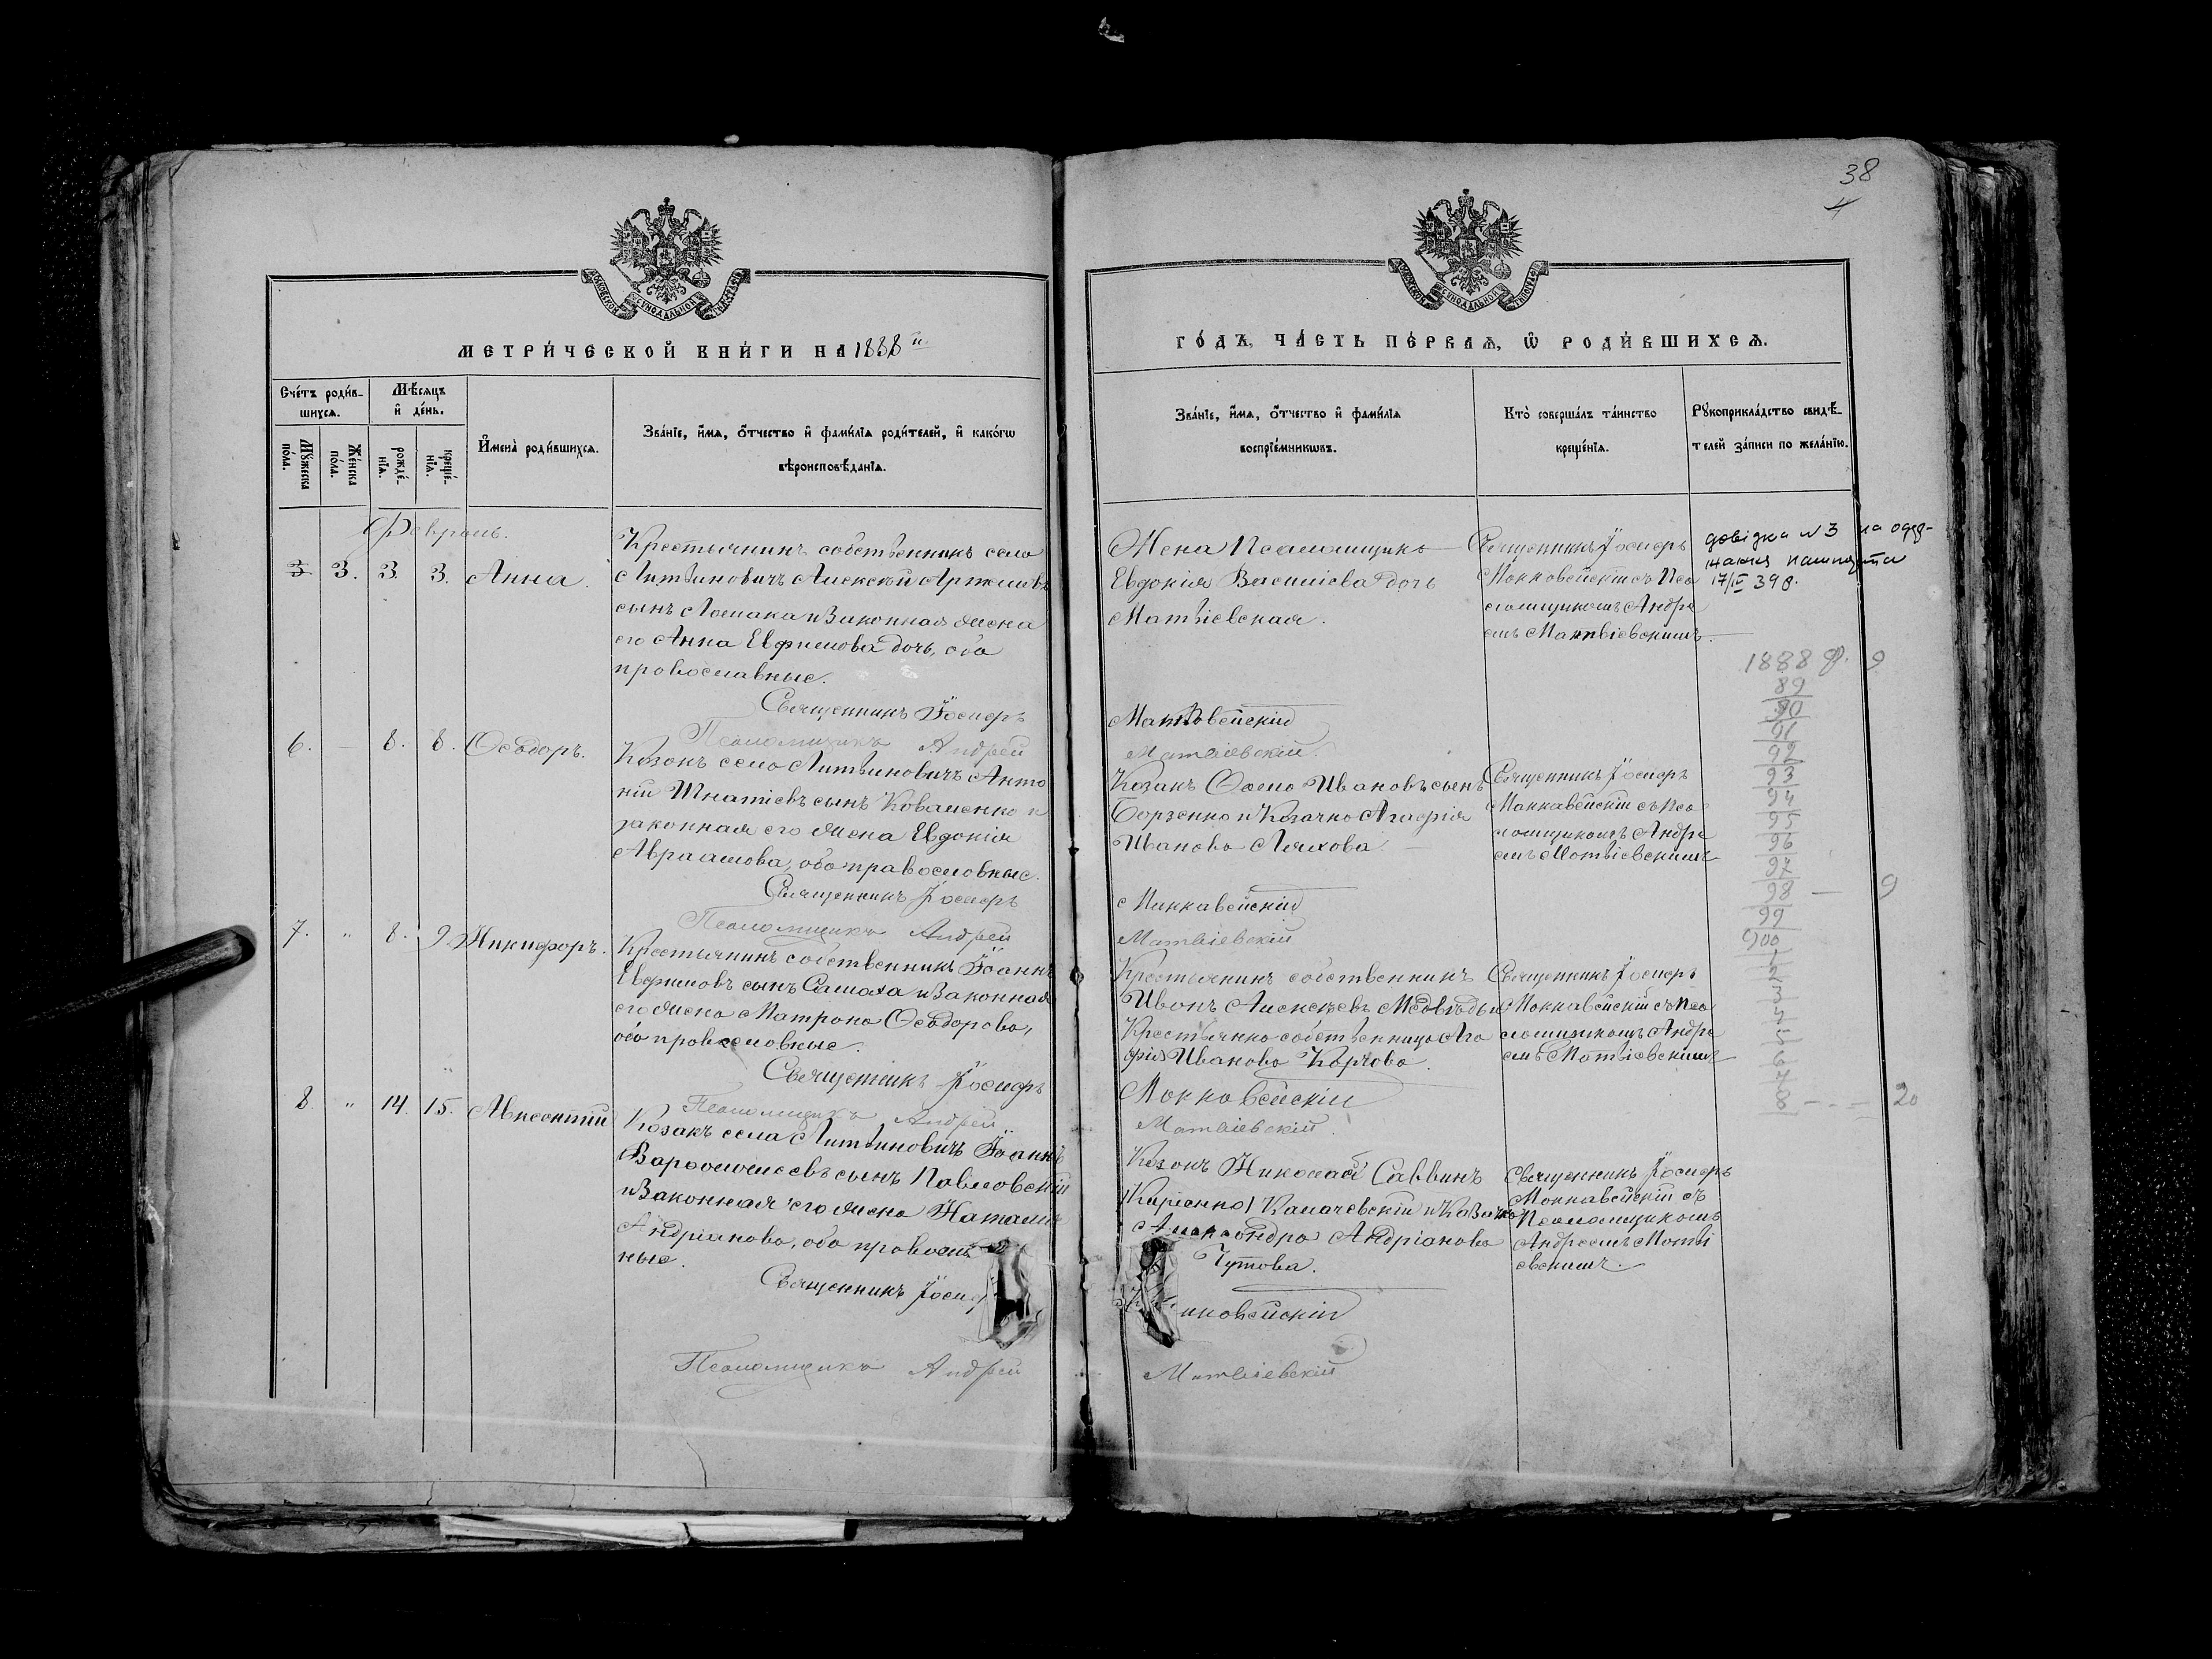 38
4
МЕТРИ́ЧЕСКОЙ КНИ́ГИ НА 1888 й
ГО́ДЪ, ЧА́СТЬ ПЕ́РВАЯ, Ѿ РОДИ́ВШИХСЯ.
Сче́тъ роди́в-
шихся.
Мѣ́сяцъ
и҆ де́нь.
Мꙋ́жеска
по́ла.
Же́нска
по́ла.
рожде́-
нїя.
креще́-
нїя.
И҆мена̀ роди́вшихся.
Зва́нїе, и҆́мя, ѻ҆́тчество и҆ фами́лїя роди́телей, и҆ како́гѡ
вѣроисповѣ́данїя.
Зва́нїе, и҆́мя, ѻ҆́тчество и҆ фами́лїя
воспрїе́мникѡвъ.
Кто̀ соверша́лъ та́инство
креще́нїя.
Рꙋкоприкла́дство свидѣ́-
телей за́писи по жела́нїю.
Февраль.
3 3. 3. 3. Анна.
Крестьянинъ собственникъ села
Литвиновичъ Алексѣй Артемовъ
сынъ Ломака и Законная жена
его Анна Евфимова дочь, оба
православные.
Священникъ Іосифъ
Псаломщикъ Андрей
Жена Псаломщика
Евдокія Василіева дочь
Матвіевская.
Маккавейскій
Матвіевскій.
Священникъ Іосифъ
Маккавейскій съ Пса
ломщикомъ Андре
емъ Матвіевскимъ.
довідка №3 на одер-
жання пашпорта
17/IV 39 р.
6. — 8. 8. Ѳеодоръ.
Козакъ села Литвиновичъ Анто
ній Игнатіевъ сынъ Коваленко и
законная его жена Евдокія
Авраамова, оба православные.
Священникъ Іосифъ
Псаломщикъ Андрей
Козакъ Ѳома Ивановъ сынъ
Борзенко и Козачка Агафія
Иванова Ляхова.
Маккавейскій
Матвіевскій
Священникъ Іосифъ
Маккавейскій съ Пса
ломщикомъ Андре
емъ Матвіевскимъ
7. " 8. 9. Никифоръ.
Крестьянинъ собственникъ Іоаннъ
Евфимовъ сынъ Самоха и Законная
его жена Матрона Ѳеодорова,
оба православные.
Священникъ Іосифъ
Псаломщикъ Андрей
Крестьянинъ собственникъ
Иванъ Алексѣевъ Медвѣдь и
Крестьянка собственница Ага
фія Иванова
Маккавейскій
Матвіевскій.
Священникъ Іосифъ
Маккавейскій съ Пса
ломщикомъ Андре
емъ Матвіевскимъ
8. " 14. 15. Авксентій
Козакъ села Литвиновичъ Іоаннъ
Варѳоломеевъ сынъ Павловскій
и Законная его жена Наталія
Андріанова, оба православ
ные.
Священникъ Іосиф
Псаломщикъ Андрей
Козакъ Николай Саввинъ
Каріенко Калачевскій и Козачка
Александра Андріанова
Чутова.
кковейскій
Матвіевскій
Священникъ Іосифъ
Маккавейскій съ
Псаломщикомъ
Андреемъ Матві
евскимъ.
1888 р. 9
89
90
91
92
93
94
95
96
97
98 — 9
99
900
20